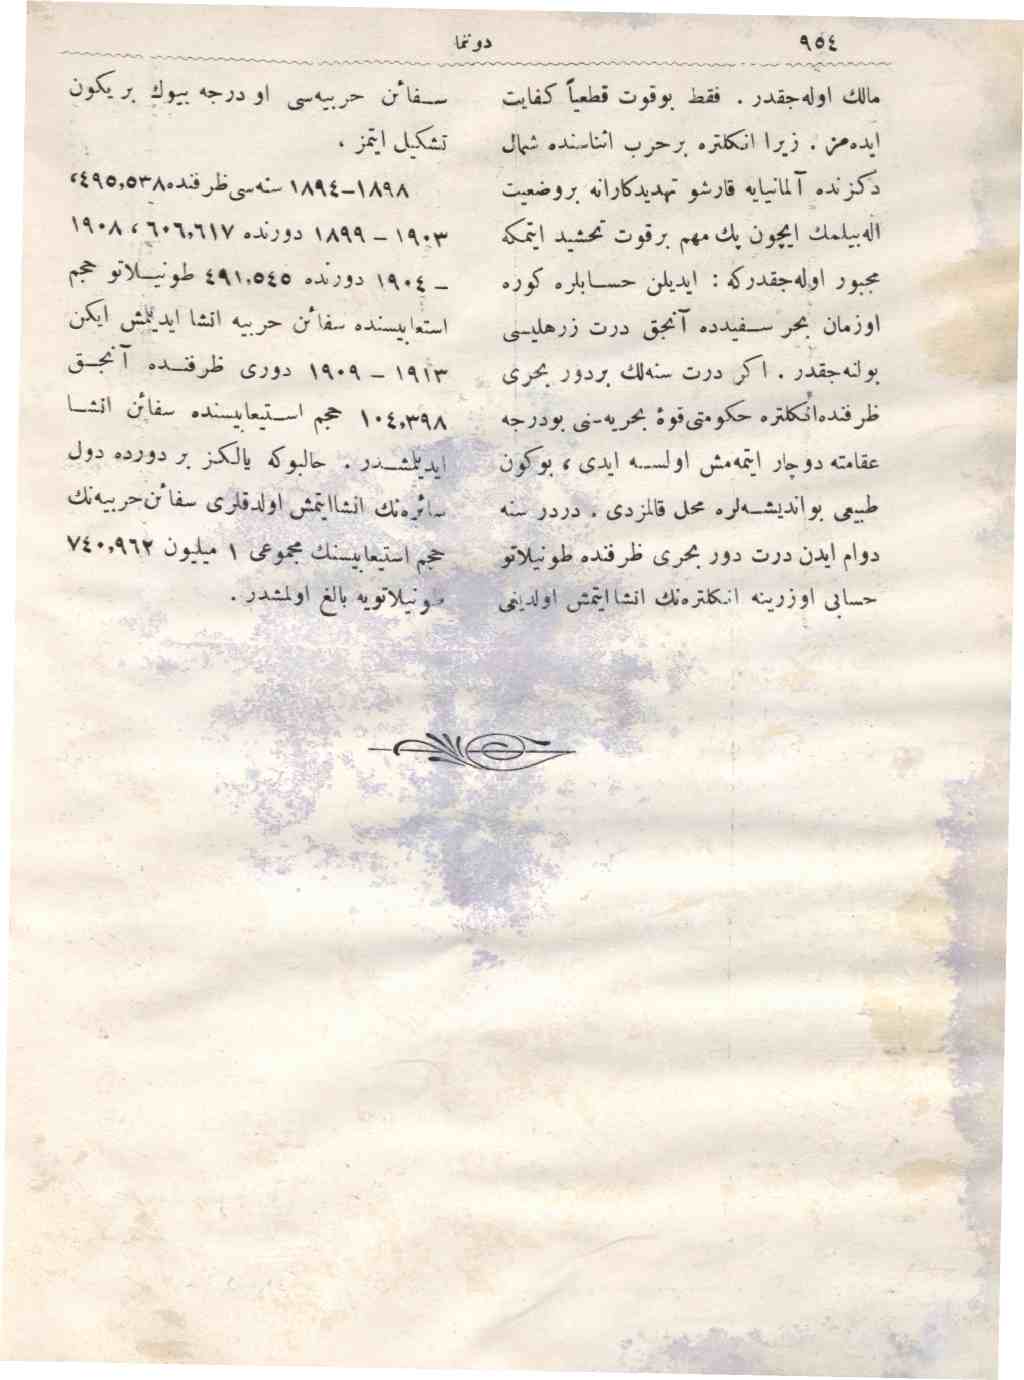 ٩٥٤
دوننما
مالك اوله‌جقدر . فقط بوقوت قطعیاً كفایت
ایده‌مز . زیرا انكلتره برحرب اثناسنده شمال
دكزنده آلمانیایه قارشو تهدیدكارانه بروضعیت
اله‌بیلمك ایچون پك مهم برقوت تحشید ایتمكه
مجبور اوله‌جقدركه : ایدیلن حسابلره كوره
اوزمان بحر سفیدده آنجق درت زرهلیسی
بولنه‌جقدر . اكر درت سنه‌لك بردور بحری
ظرفنده انكلتره حكومتی قوهٔ بحریه‌سنی بودرجه
عقامته دوچار ایتمه‌مش اولسه ایدی ، بوكون
طبیعی بواندیشه‌لره محل قالمزدی . دردر سنه
دوام ایدن درت دور بحری ظرفنده طونیلاتو
حسابی اوزرینه انكلتره‌نك انشا ایتمش اولدیغی
سفائن حربیه‌سی او درجه بیوك بر یكون
تشكیل ایتمز .
١٨٩٤–١٨٩٨ سنه‌سی ظرفنده ٤٩٥,٥٣٨،
١٨٩٩ – ١٩٠٣ دورنده ٦٠٦,٦١٧ ، ١٩٠٨
– ١٩٠٤ دورنده ٤٩١,٥٤٥ طونیلاتو حجم
استعابیسنده سفائن حربیه انشا ایدلمش ایكن
١٩٠٩ – ١٩١٣ دوری ظرفنده آنجق
١٠٤,٣٩٨ حجم استیعابیسنده سفائن انشا
ایدیلمشدر . حالبوكه یالكز بر دورده دول
سائره‌نك انشا ایتمش اولدقلری سفائن حربیه‌نك
حجم استیعابیسنك مجموعی ١ میلیون ٧٤٠,٩٦٢
طونیلاتویه بالغ اولمشدر .